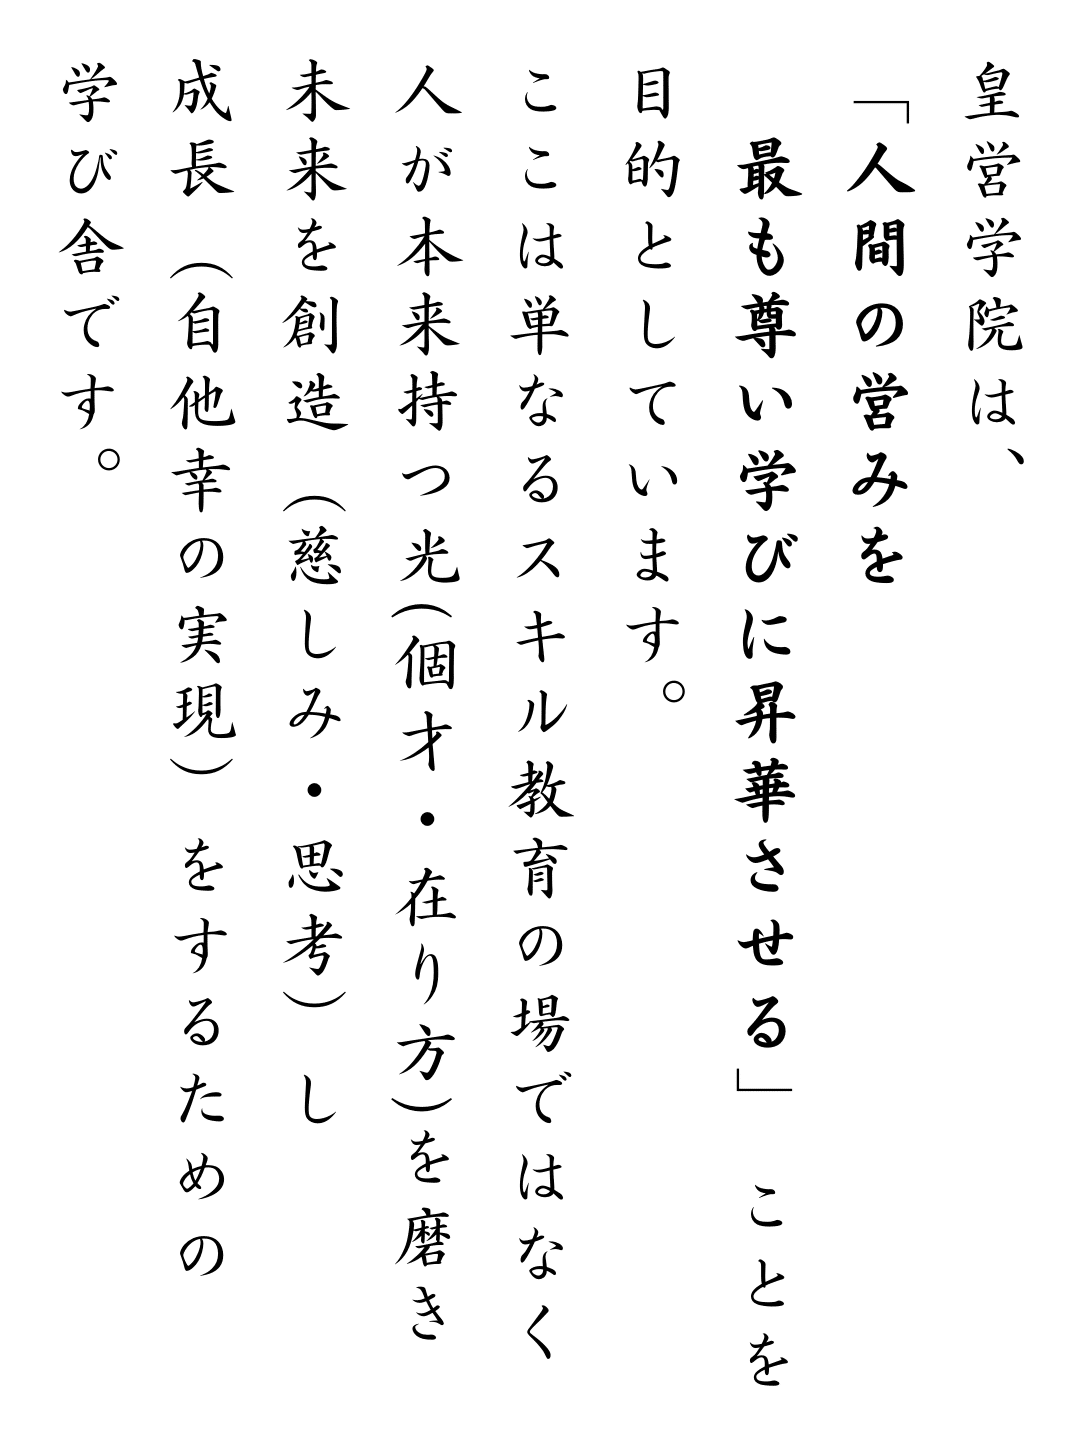 皇営学院は、
「人間の営みを
最も尊い学びに昇華させる」 ことを
目的としています。
ここは単なるスキル教育の場ではなく
人が本来持つ光(個才・在り方)を磨き
未来を創造（慈しみ・思考）し
成長（自他幸の実現）をするための
学び舎です。